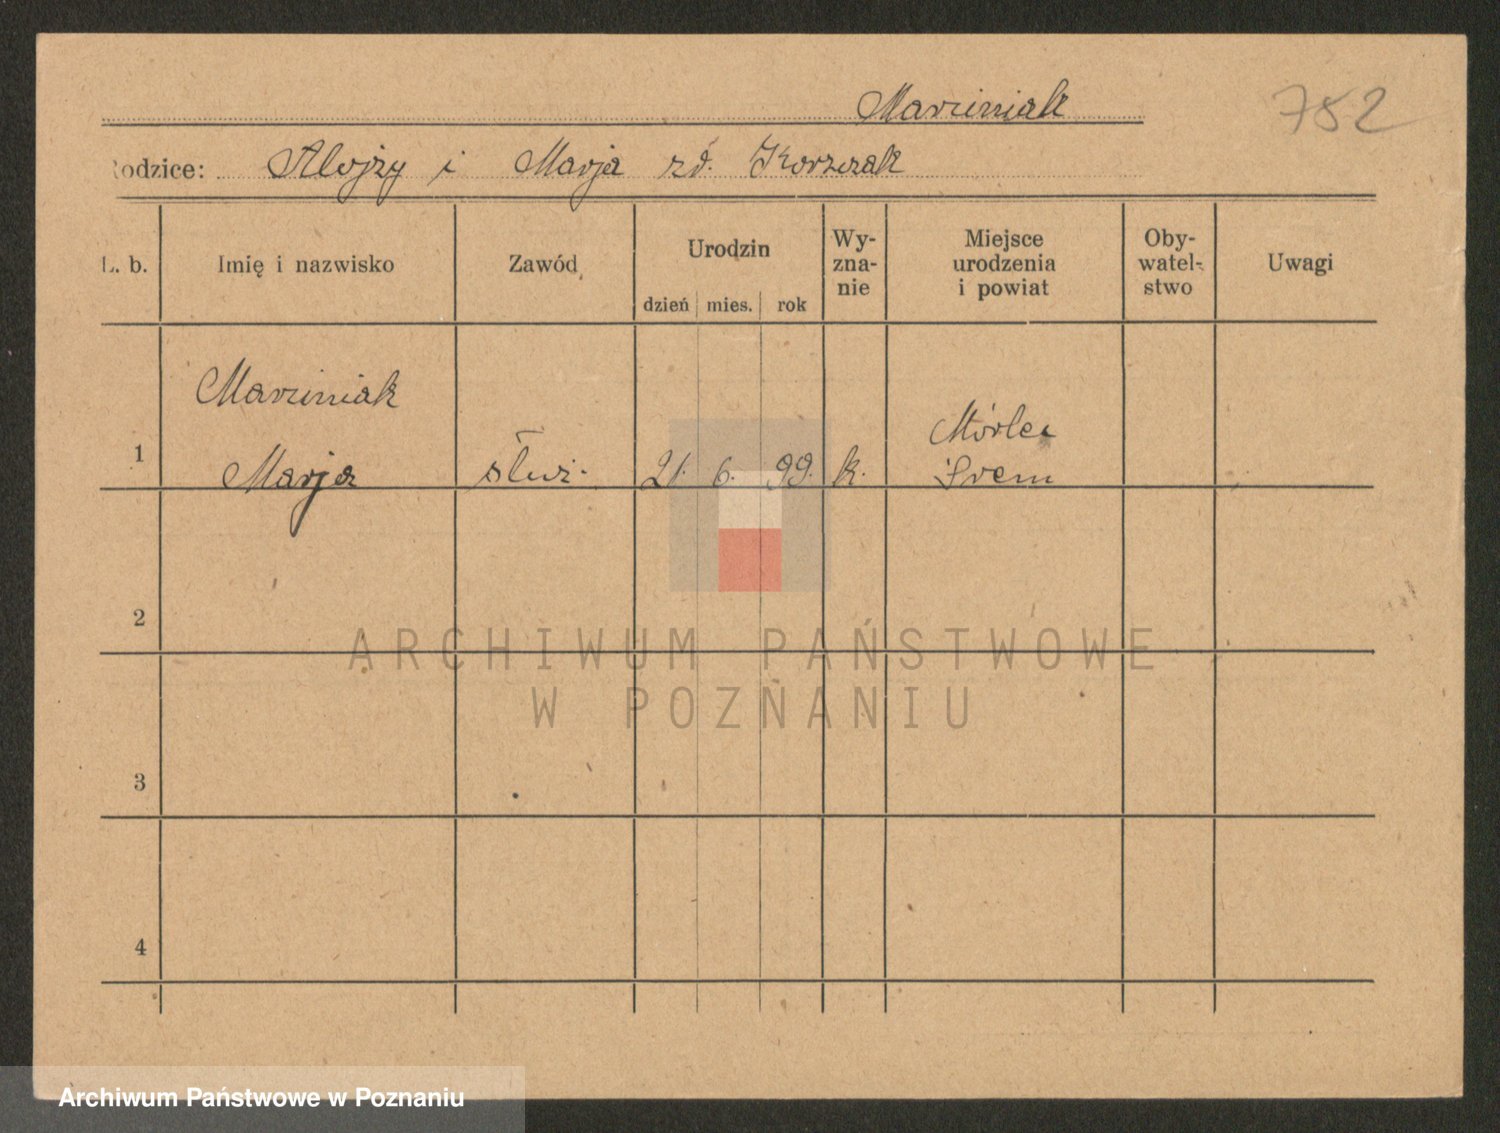 Marciniak 782
Rodzice: Alojzy i Marja zd. Korzczak
L. b. Imię i nazwisko Zawód Urodzin dzień mies. rok Wy-zna-nie Miejsce urodzenia i powiat Oby-watel-stwo Uwagi
Marciniak
Mórka
1 Marja służ. 21. 6. 99. k. Śrem
2
ARCHIWUM PAŃSTWOWE
W POZNANIU
3
4
Archiwum Państwowe w Poznaniu